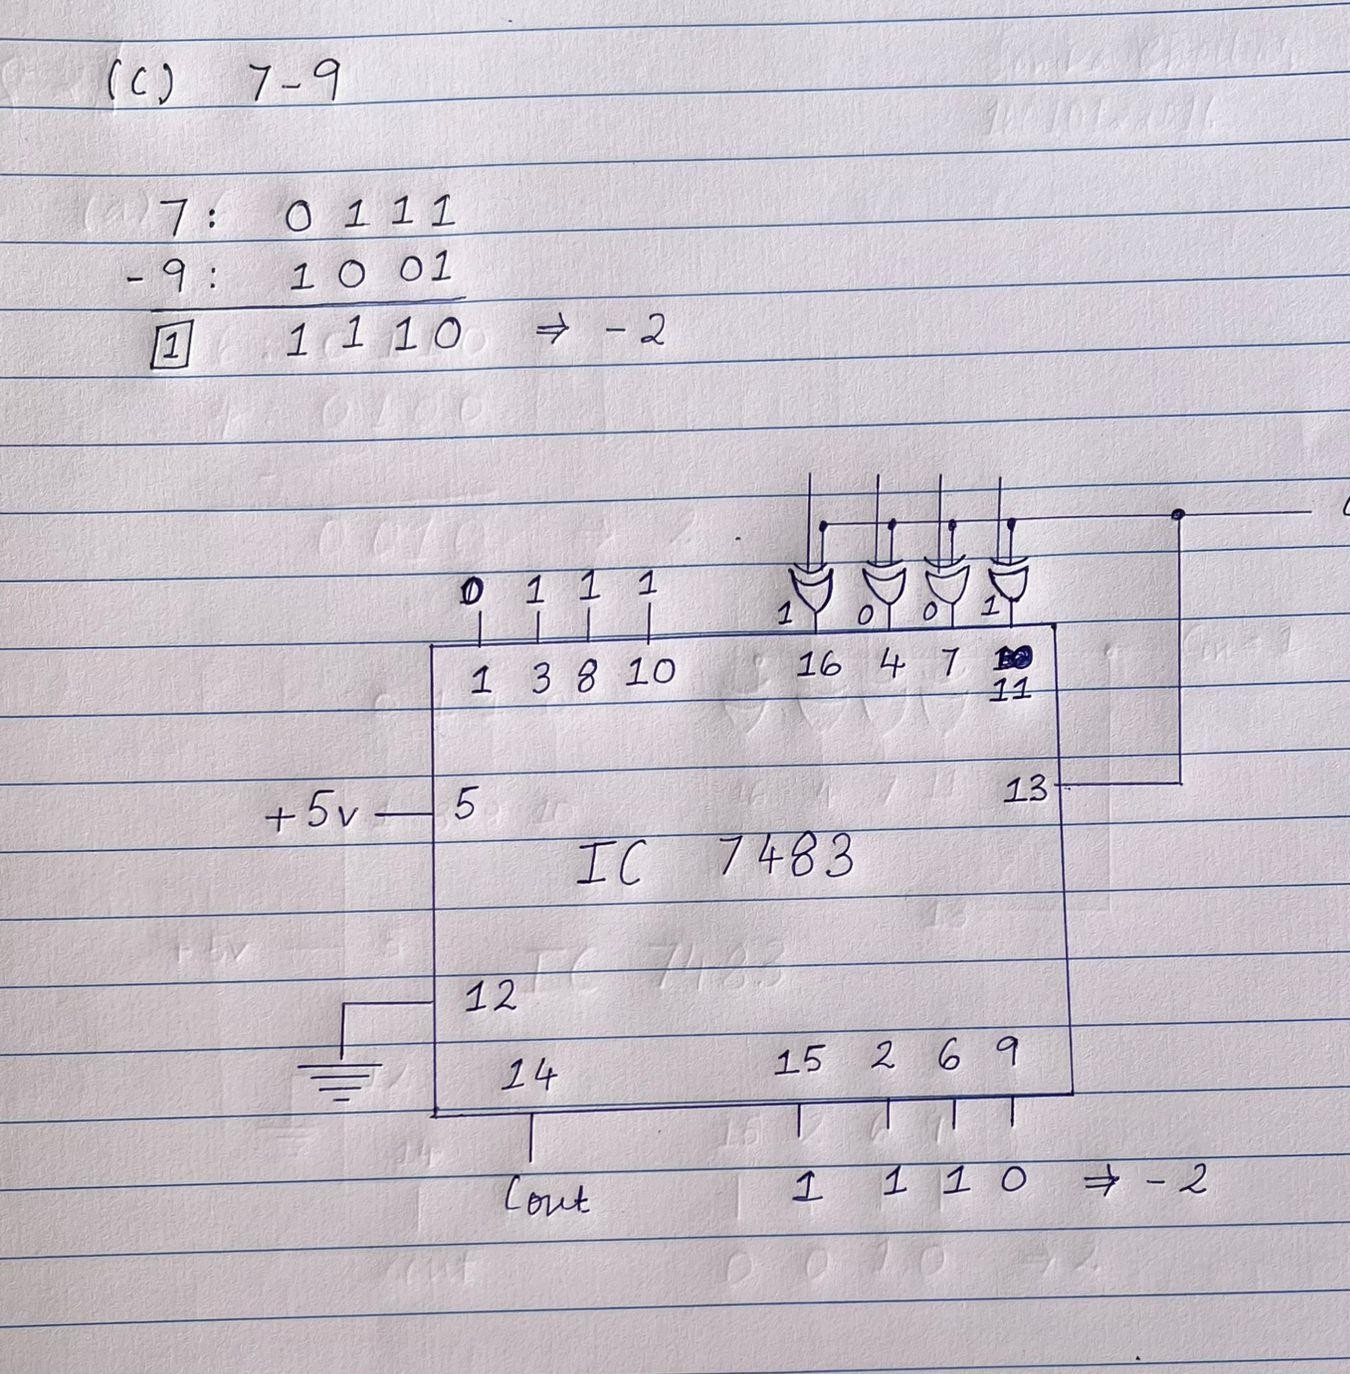 (C) 7-9
7: 0 1 1 1
-9: 1 0 0 1
1 1 1 1 0 ⇒ -2
0 1 1 1
1 0 0 1
1 3 8 10 16 4 7
11
+5v 5 13
IC 7483
12
14 15 2 6 9
Cout 1 1 1 0 ⇒ -2